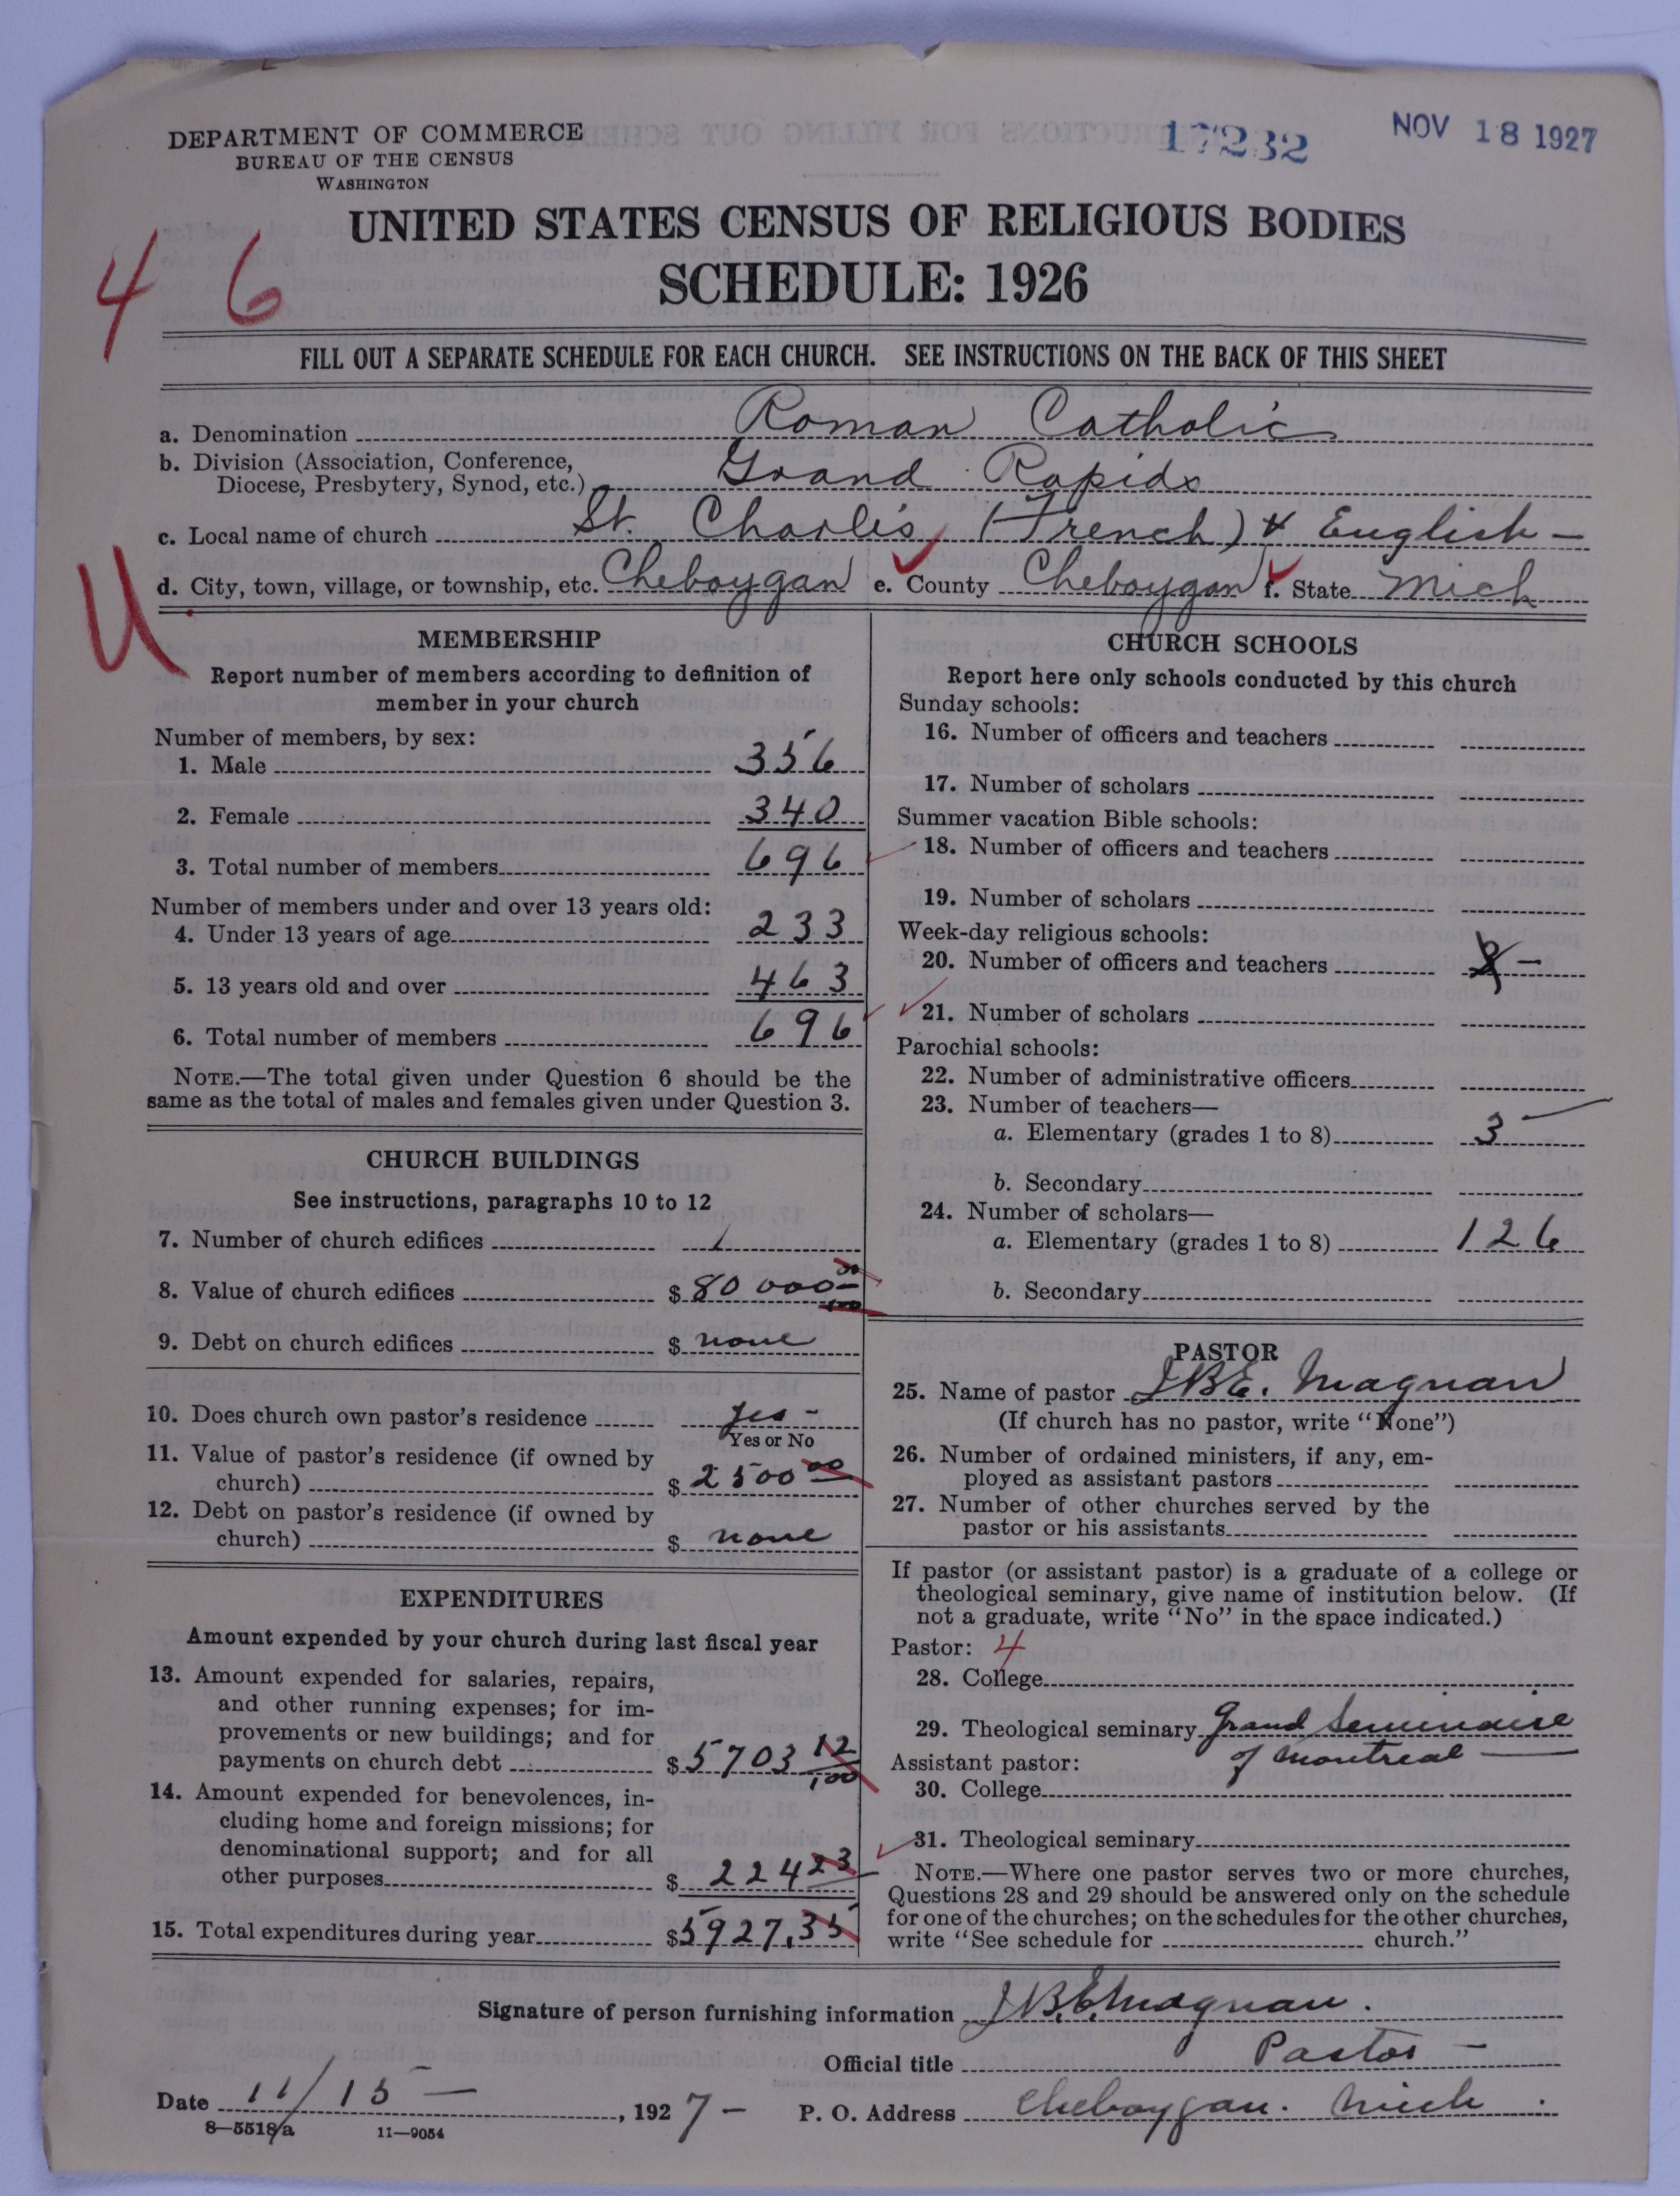 DEPARTMENT OF COMMERCE
BUREAU OF THE CENSUS
WASHINGTON
17232
NOV 18 1927
UNITED STATES CENSUS OF RELIGIOUS BODIES
SCHEDULE: 1926
4 6
FILL OUT A SEPARATE SCHEDULE FOR EACH CHURCH. SEE INSTRUCTIONS ON THE BACK OF THIS SHEET
a. Denomination Roman Catholic
b. Division (Association, Conference,
Diocese, Presbytery, Synod, etc.) Grand Rapids
c. Local name of church St. Charles, (French) & English –
d. City, town, village, or township, etc. Cheboygan e. County Cheboygan f. State Mich
U
MEMBERSHIP
Report number of members according to definition of
member in your church
Number of members, by sex:
1. Male 356
2. Female 340
3. Total number of members 696
Number of members under and over 13 years old:
4. Under 13 years of age 233
5. 13 years old and over 463
6. Total number of members 696
NOTE.—The total given under Question 6 should be the
same as the total of males and females given under Question 3.
CHURCH BUILDINGS
See instructions, paragraphs 10 to 12
7. Number of church edifices 1
8. Value of church edifices $ 80 000 00/100
9. Debt on church edifices $ none
10. Does church own pastor's residence yes –
Yes or No
11. Value of pastor's residence (if owned by
church) $ 2500 00
12. Debt on pastor's residence (if owned by
church) $ none
EXPENDITURES
Amount expended by your church during last fiscal year
13. Amount expended for salaries, repairs,
and other running expenses; for im-
provements or new buildings; and for
payments on church debt $ 5703 12/100
14. Amount expended for benevolences, in-
cluding home and foreign missions; for
denominational support; and for all
other purposes $ 224 23
15. Total expenditures during year $5927,35
CHURCH SCHOOLS
Report here only schools conducted by this church
Sunday schools:
16. Number of officers and teachers
17. Number of scholars
Summer vacation Bible schools:
18. Number of officers and teachers
19. Number of scholars
Week-day religious schools:
20. Number of officers and teachers –
21. Number of scholars
Parochial schools:
22. Number of administrative officers
23. Number of teachers—
a. Elementary (grades 1 to 8) 3 –
b. Secondary
24. Number of scholars—
a. Elementary (grades 1 to 8) 126
b. Secondary
PASTOR
25. Name of pastor J.B.E. Magnan
(If church has no pastor, write "None")
26. Number of ordained ministers, if any, em-
ployed as assistant pastors
27. Number of other churches served by the
pastor or his assistants
If pastor (or assistant pastor) is a graduate of a college or
theological seminary, give name of institution below. (If
not a graduate, write "No" in the space indicated.)
Pastor: 4
28. College
29. Theological seminary Grand Seminaire
Assistant pastor: of Montreal –
30. College
31. Theological seminary
NOTE.—Where one pastor serves two or more churches,
Questions 28 and 29 should be answered only on the schedule
for one of the churches; on the schedules for the other churches,
write "See schedule for church."
Signature of person furnishing information J.B.E. Magnan.
Official title Pastor –
Date 11/15 – , 1927 – P. O. Address Cheboygan. Mich.
8—5518a 11—9054